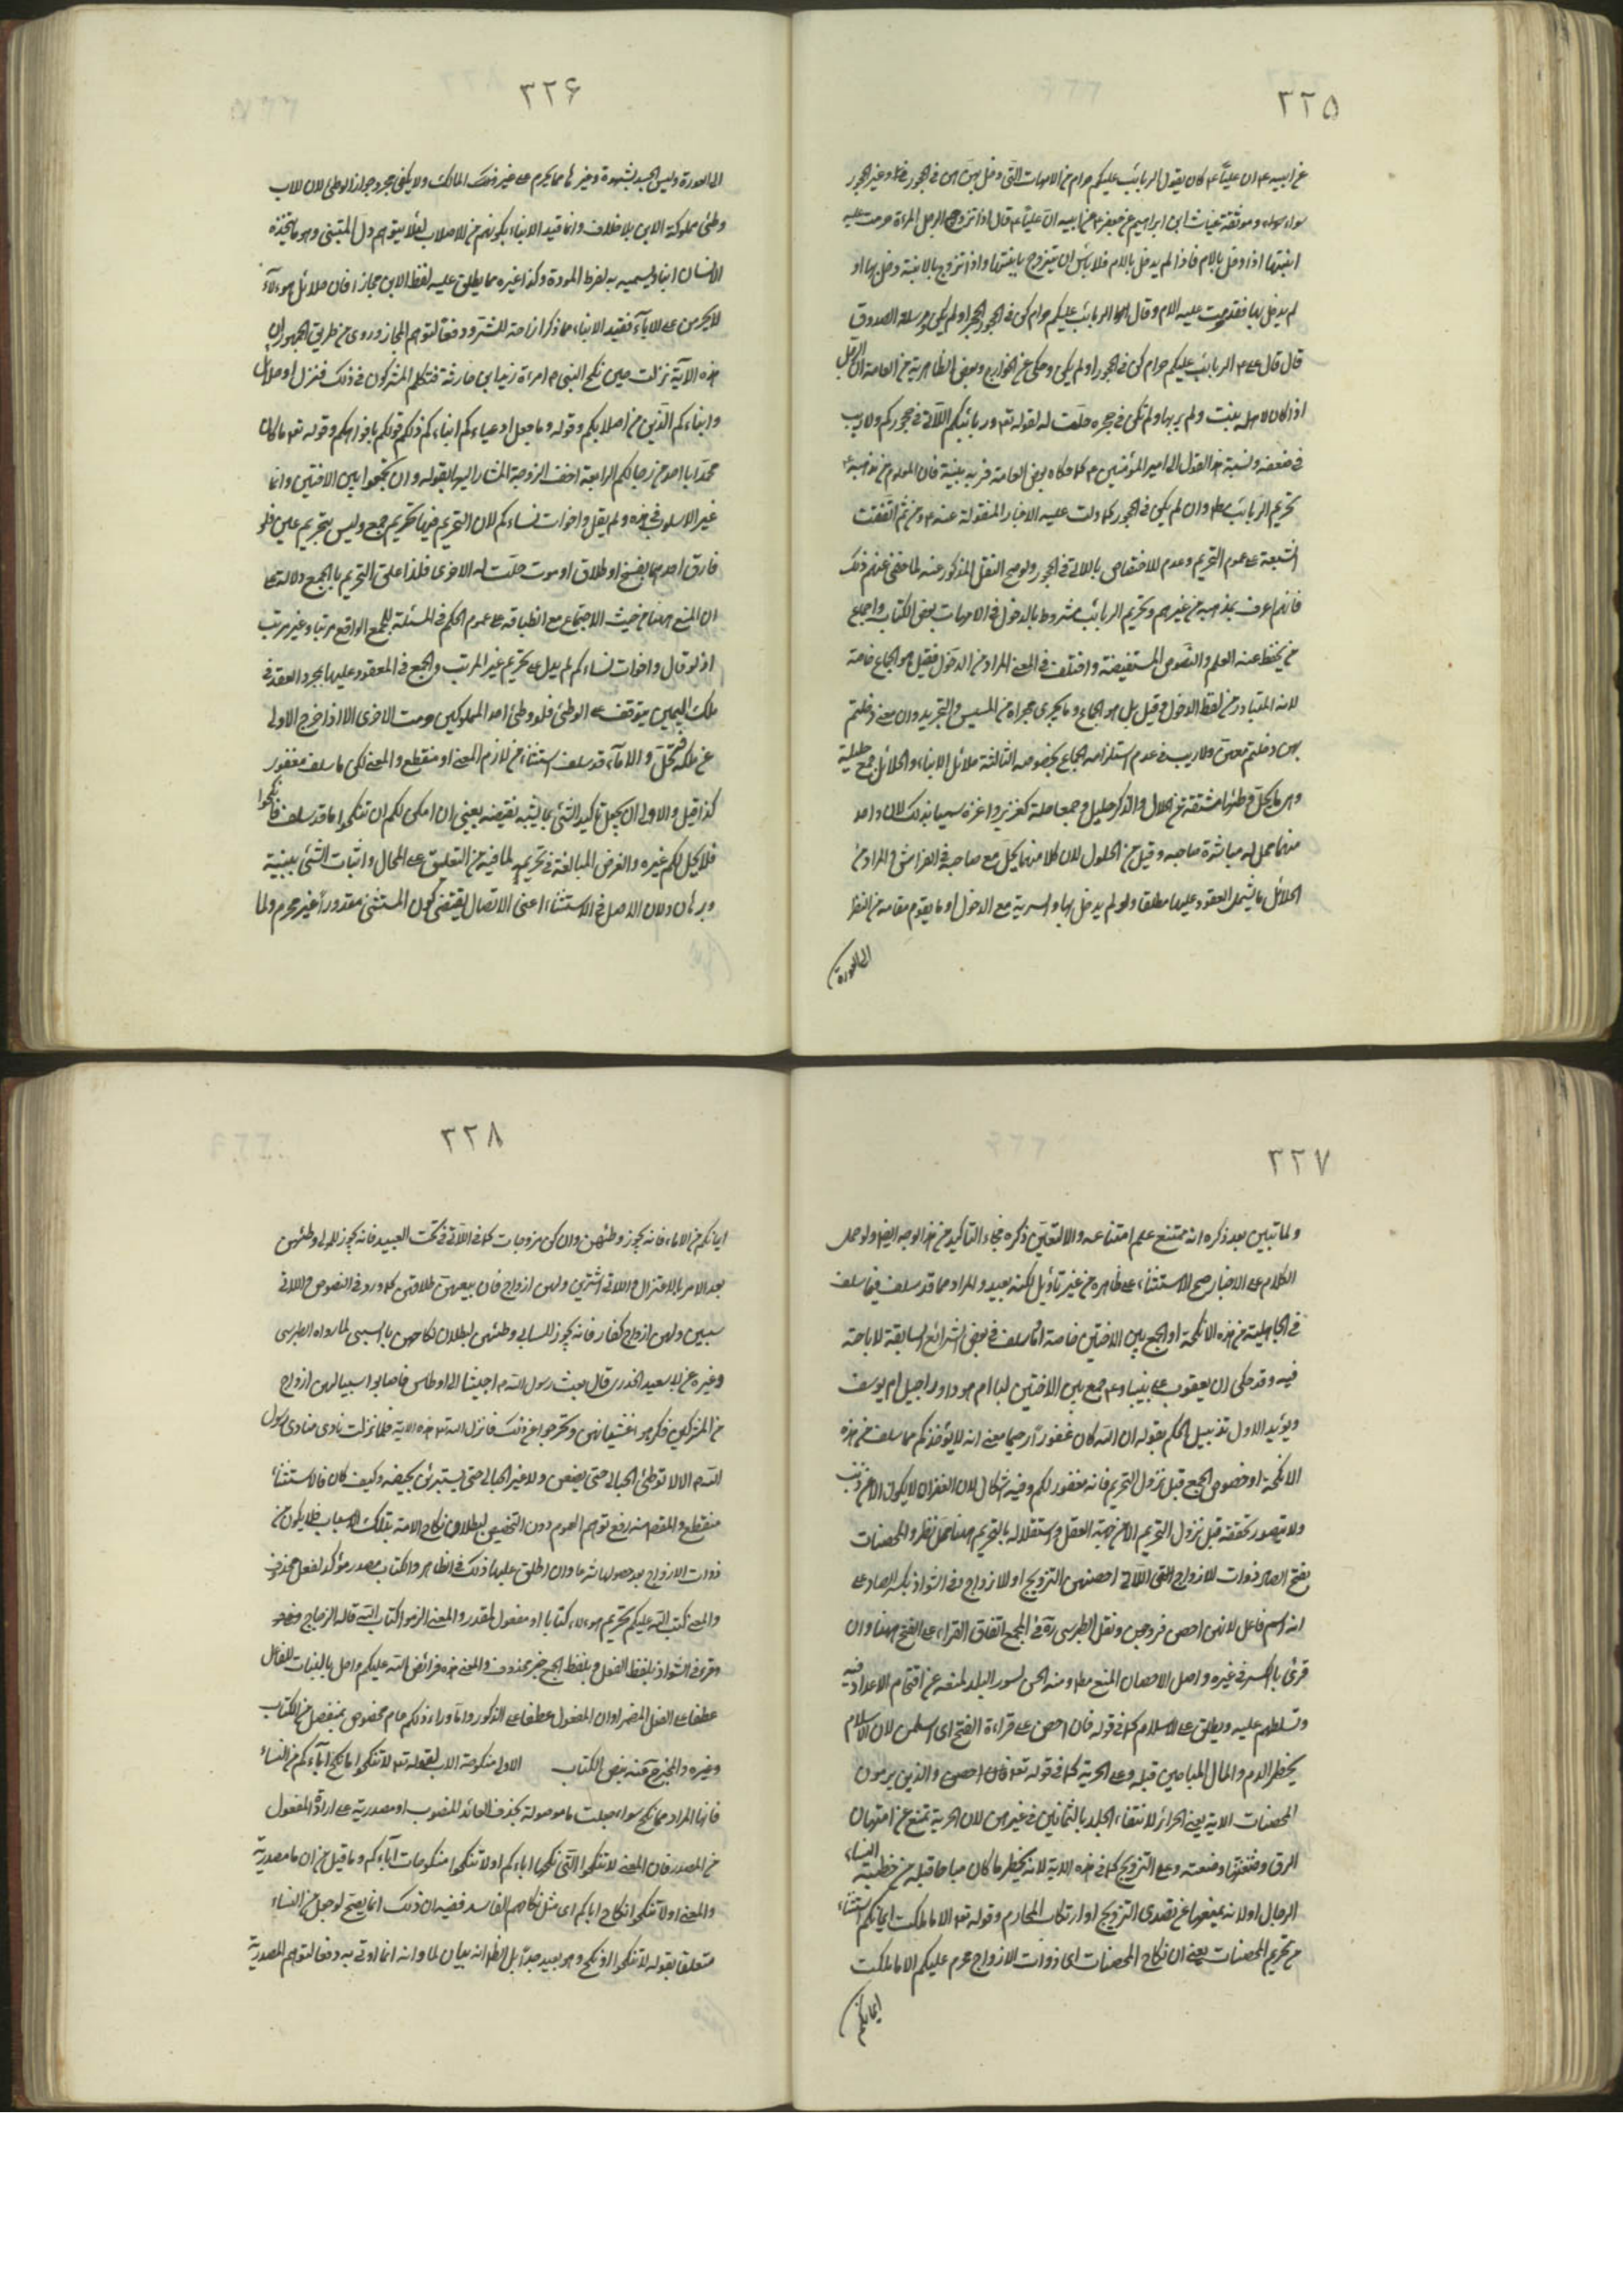 ٣٢٥
عن ابيه ع ان عليّا ع كان يقول الربائب عليكم حرام من الامهات التى دخل بهن هن فى الحجور و غير الحجور
سواء وموثقة غياث ابن ابراهيم عن جعفر ع عن ابيه ان عليّا ع قال اذا تزوج الرجل المرءة حرمت عليه
ابنتها اذا دخل بالام فاذا لم يدخل بالام فلا باس ان يتزوج بابنتها واذا تزوج بالابنة دخل بها او
لم يدخل بها فقد حرمت عليه الام وقال الربائب عليكم حرام كن فى الحجر او لم يكن ومرسلة الصدوق
قال قال على ع الربائب عليكم حرام كن فى الحجور او لم يكن وحكى عن الخوارج وبعض الظاهرية من العامة ان الرجل
اذا كان لاهله بنت ولم يربها ولم تكن فى حجره حلّت له لقوله تع وربائبكم اللّاتى فى حجوركم ولا ريب
فى ضعفه ونسبة هذا القول الى امير المؤمنين ع كما حكاه بعض العامة فرية بينة فان المعلوم من مذهبه ع
تحريم الربائب وان لم يكن فى الحجور كما دلت عليه الاخبار المنقولة عنه ع ومن ثم اتفقت
الشيعة على عموم التحريم وعدم الاختصاص باللاتى فى الحجور ولو صح النقل المذكور عنه لما خفى عنهم ذلك
فانهم اعرف بمذهبه من غيرهم وتحريم الربائب مشروط بالدخول فى الامهات بنص الكتاب واجماع
من يحفظ عنه العلم والنصوص المستفيضة واختلف فى المعنى المراد من الدخول فقيل هو الجماع خاصة
لانه المتبادر من لفظ الدخول وقيل بل هو الجماع وما يجرى مجراه من المسيس والتجريد وان معنى دخلتم
بهن دخلتم معهن ولا ريب فى عدم استلزامه الجماع بخصوصه الثالثة حلائل الابناء والحلائل جمع حليلة
وهى ما يحلّ وطئها مشتقة من الحلال والذكر حليل وجمعه احلة كعزيز واعزة سميا بذلك لان كل واحد
منهما حل له مباشرة صاحبه وقيل من الحلول لان كلا منهما يحل مع صاحبه فى الفراش والمراد من
الحلائل ما يشمل المعقود عليها مطلقا ولو لم يدخل بها والسرية مع الدخول او ما يقوم مقامه من النظر
الى العورة
٣٢۶
الى العورة وليس الجسد بشهوة وغيرها مما يحرم على غير ذلك المالك ولا يكفى مجرد جواز الوطى لان للاب
وطئ مملوكة الابن بلا خلاف وانما قيد الابناء بكونهم من الاصلاب لئلا يتوهم دخول المتبنى وهو ما يتخذه
الانسان ابنا ويسميه به لفرط المودة وكذا غيره مما يطلق عليه لفظ الابن مجازا فان حلائل هؤلاء
لا يحرمن على الاباء فقيد الابناء بما ذكر ازاحة للتشتر ودفعا لتوهم المجاز وروى من طريق الجمهور ان
هذه الاية نزلت حين نكح النبى امرءة زيد ابن حارثة فتكلم المشركون فى ذلك فنزل او حلائل
وابناءكم الّذين من اصلابكم وقوله وما جعل ادعياءكم ابناءكم ذلكم قولكم بافواهكم وقوله تع ما كان
محمّد ابا احد من رجالكم الرابعة اخت الزوجة المشار اليها بقوله وان تجمعوا بين الاختين وانما
غير الاسلوب فى هذه ولم يقل واخوات نسائكم لان التحريم هنا تحريم جمع وليس بتحريم عين فلو
فارق احدهما بفسخ او طلاق او موت حلّت له الاخرى فلذا علق التحريم بالجمع دلالة على
ان المنع هنا من حيث الاجتماع مع انطباقه على عموم الحكم فى المسئلة للجمع الواقع مرتبا وغير مرتب
اذ لو قال واخوات نسائكم لم يدل على تحريم غير المرتب والجمع فى المعقود عليها بمجرد العقد وفى
ملك اليمين يتوقف على الوطئ فلو وطئ احد المملوكتين حرمت الاخرى الا اذا خرج الاولى
عن ملكه فتحلّ والا ما قد سلف استثناء من لازم المعنى او منقطع والمعنى لكن ما سلف مغفور
كذا قيل والاولى ان يجعل تاكيد الشئ بما يشبه نقيضه يعنى ان امكن لكم ان تنكحوا ما قد سلف فانكحوا
فلا يحل لكم غيره والغرض المبالغة فى تحريمه لما فيه من التعليق على المحال واثبات الشئ ببينة
وبرهان ولان الاصل فى الاستثناء اعنى الاتصال يقتضى كون المستثنى مقدورا غير محرم ولما
٣٢٧
ولما تبين بعد ذكره انه ممتنع علم امتناعه والا لتعيّن ذكره فجاء التاكيد من هذا الوجه ايضا ولو حمل
الكلام على الاخبار صح الاستثناء على ظاهره من غير تاويل لكنه بعيد والمراد مما قد سلف فيما سلف
فى الجاهلية من هذه الانكحة او الجمع بين الاختين خاصة او ما سلف فى بعض الشرائع السابقة لاباحته
فيه وقد حكى ان يعقوب على نبينا وع جمع بين الاختين ليا ام يهودا وراحيل ام يوسف
ويؤيد الاول تذييل الحكم بقوله ان اللّه كان غفورا رحيما معنى انه لا يؤاخذكم مما سلف من هذه
الانكحة او خصوص الجمع قبل نزول التحريم فانه مغفور لكم وفيه اشكال لان الغفران لا يكون الا عن ذنب
ولا يتصور تحققه قبل نزول التحريم الا من جهة العقل واستقلاله بالتحريم هنا محل نظر والمحصنات
بفتح الصاد ذوات الازواج اللاتى احصنهن التزويج او الازواج وفى الشواذ بكسر الصاد على
انه اسم فاعل لانهن احصن فروجهن ونقل الطبرسى ره فى المجمع اتفاق القراء على الفتح هنا وان
قرئ بالكسر فى غيره واصل الاحصان المنع ومنه الحصن لسور البلد لمنعه من اقتحام الاعداء فيه
وتسلطهم عليه ويطلق على الاسلام كما فى قوله فان احصن على قراءة الفتح اى اسلمن لان الاسلام
يحظر الدم والمال المباحين قبله وعلى الحرية كما فى قوله تع فان احصن والذين يرمون
المحصنات الاية يعنى الحرائر لانتفاء الجلد بالثمانين فى غيرهن لان الحرية تمنع عن امتهان
الرق وعلى التزويج كما فى هذه الاية لانه يحظر ما كان مباحا قبله من خطبة النساء
الرجال او لانه يمنعها عن تصدى التزويج او ارتكاب المحارم وقوله تع الا ما ملكت ايمانكم استثناء
من تحريم المحصنات يعنى ان نكاح المحصنات اى ذوات الازواج محرم عليكم الا ما ملكت
ايمانكم
٣٢٨
ايمانكم من الاماء فانه يجوز وطئهن وان كن مزوجات كما فى اللّاتى تحت العبيد فانه يجوز للمولى وطئهن
بعد الامر بالاعتزال واللاتى اشترين ولهن ازواج فان بيعهن طلاقهن كما ورد فى النصوص واللاتى
سبين ولهن ازواج كفار فانه يجوز للسابى وطئهن لبطلان نكاحهن بالسبى لما رواه الطبرسى
وغيره عن ابى سعيد الخدرى قال بعث رسول اللّه ص جيشا الى اوطاس فاصابوا سبيا لهن ازواج
من المشركين فكرهوا غشيانهن وتحرجوا عن ذلك فانزل اللّه تع هذه الاية فلما نزلت نادى منادى رسول
اللّه ص الا لا توطئ الحبالى حتى يضعن ولا غير الحبالى حتى يستبرئن بحيضه وكيف كان فالاستثناء
منقطع والمقصد منه رفع توهم العموم دون التخصيص لبطلان نكاح الامة بتلك الاسباب فلا يكون من
ذوات الازواج بعد حصولها وان اطلق عليها ذلك فى الظاهر والكتاب مصدر مؤكد لفعل محذوف
والمعنى كتب اللّه عليكم تحريم هؤلاء كتابا او مفعول لمقدر والمعنى الزموا كتاب اللّه قاله الزجاج
وقرئ فى الشواذ بلفظ الفعل وبلفظ الجمع خبر محذوف والمعنى هذه فرائض اللّه عليكم واحل بالبناء للفاعل
عطف على الفعل المضمر او ان المفعول عطفا على المذكور وما وراء ذلكم عام مخصوص بمنفصل من الكتاب
وغيره والمخرج منه بنص الكتاب الاول منكوحة الاب لقوله تع لا تنكحوا ما نكح اباءكم من النساء
فانها المراد مما نكح سواء جعلت ما موصولة بحذف العائد المنصوب او مصدرية على ارادة المفعول
من المصدر فان المعنى لا تنكحوا التى نكحها اباءكم او لا تنكحوا منكوحات اباءكم وما قيل من ان ما مصدرية
والمعنى ولا تنكحوا نكاح اباءكم اى مثل نكاحهم الفاسد ففيه ان ذلك انما يصح لو جعل من النساء
متعلقا بقوله لا تنكحوا او نكح وهو بعيد جدّا بل الظاهر انه بيان لما وانه انما اوتى به دفعا لتوهم المصدرية